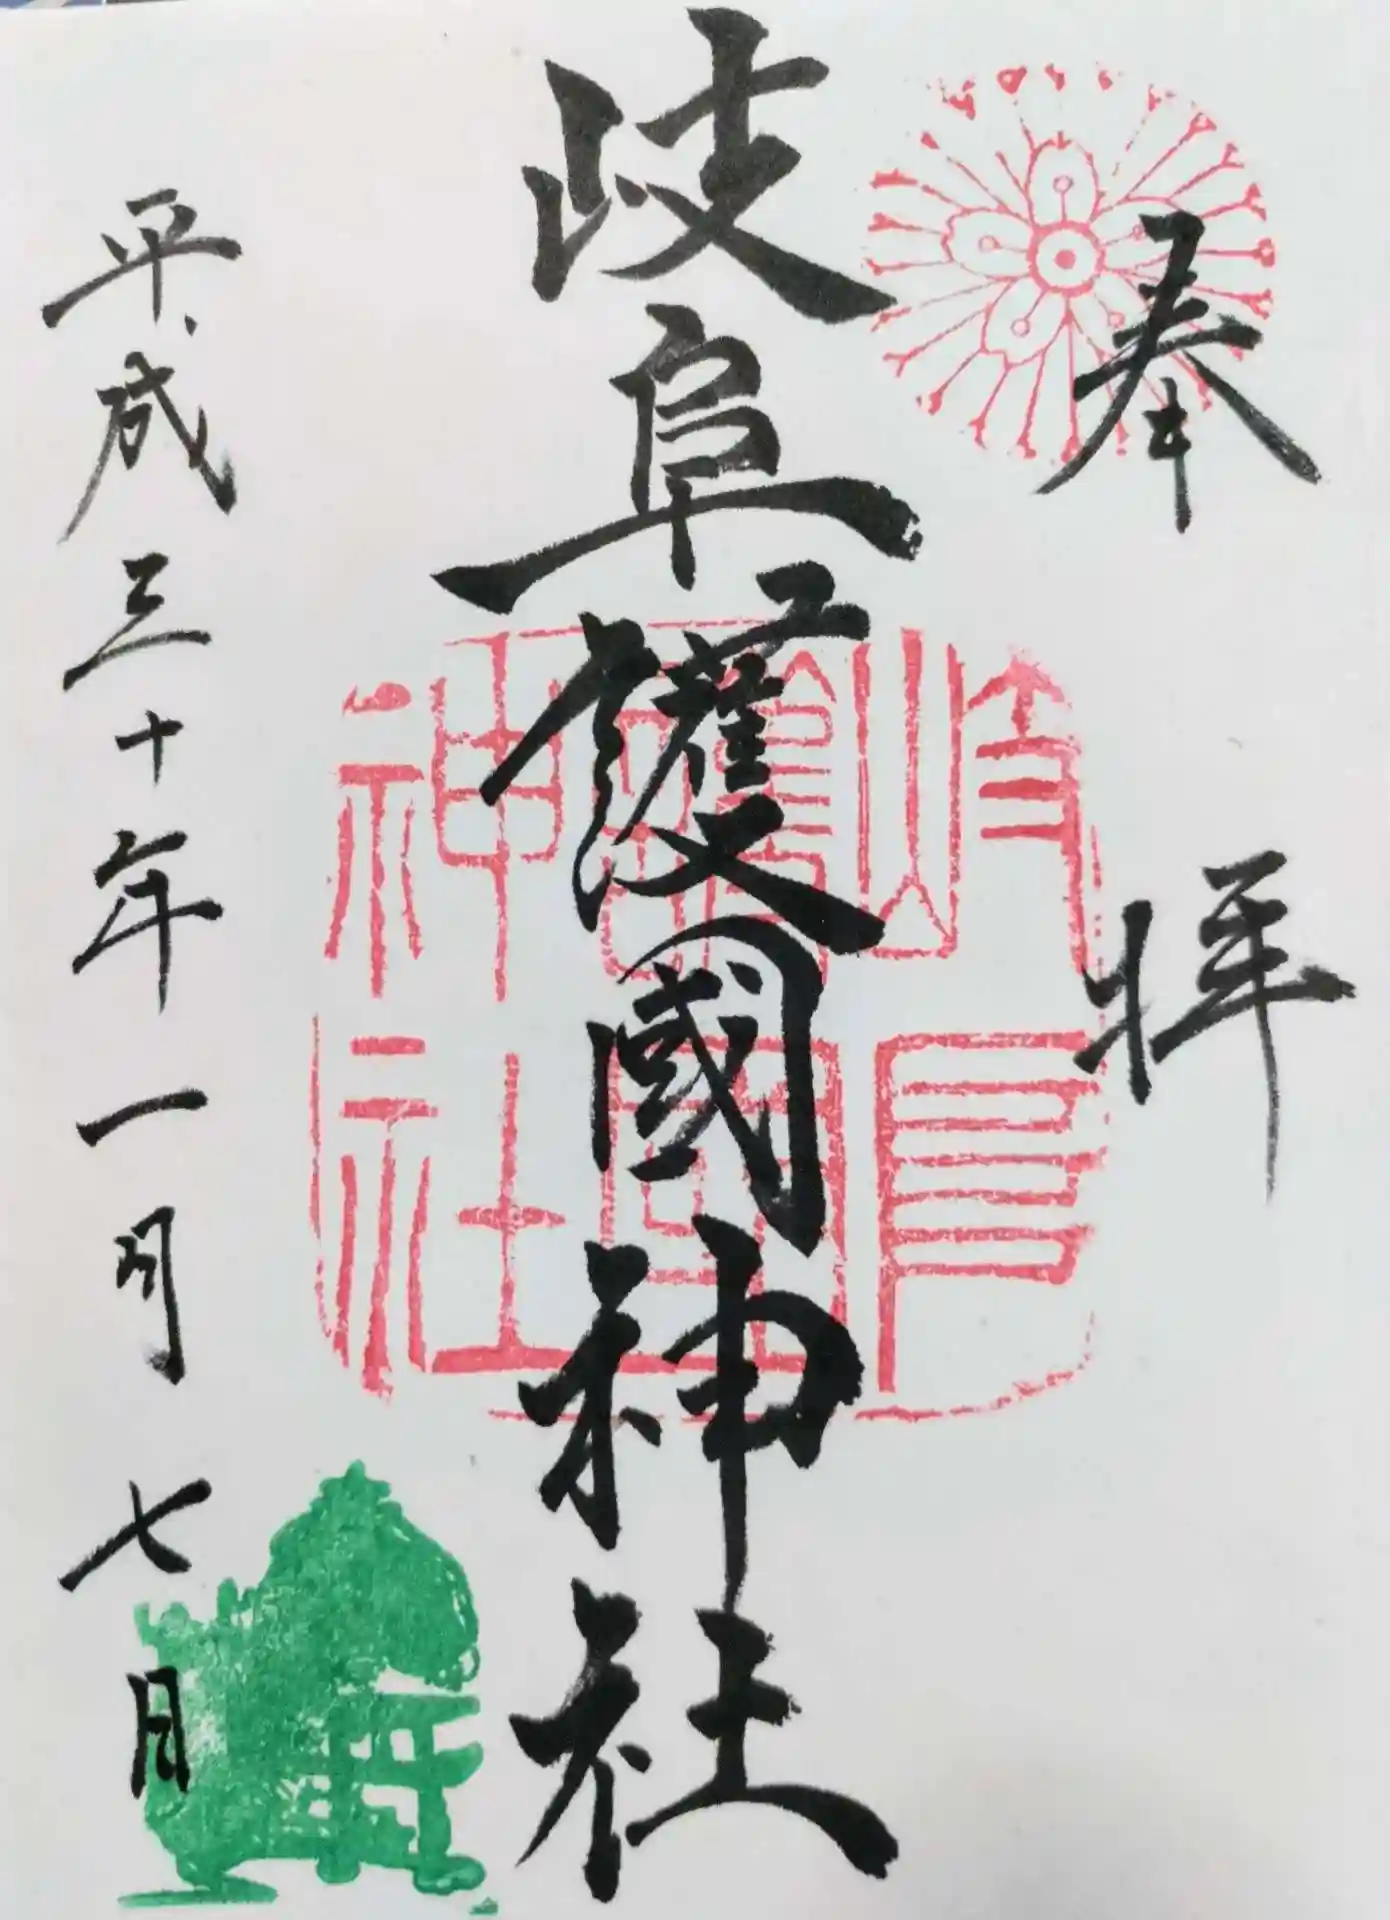 奉拝
岐阜護國神社
岐阜
護國
神社
平成三十年一月七日